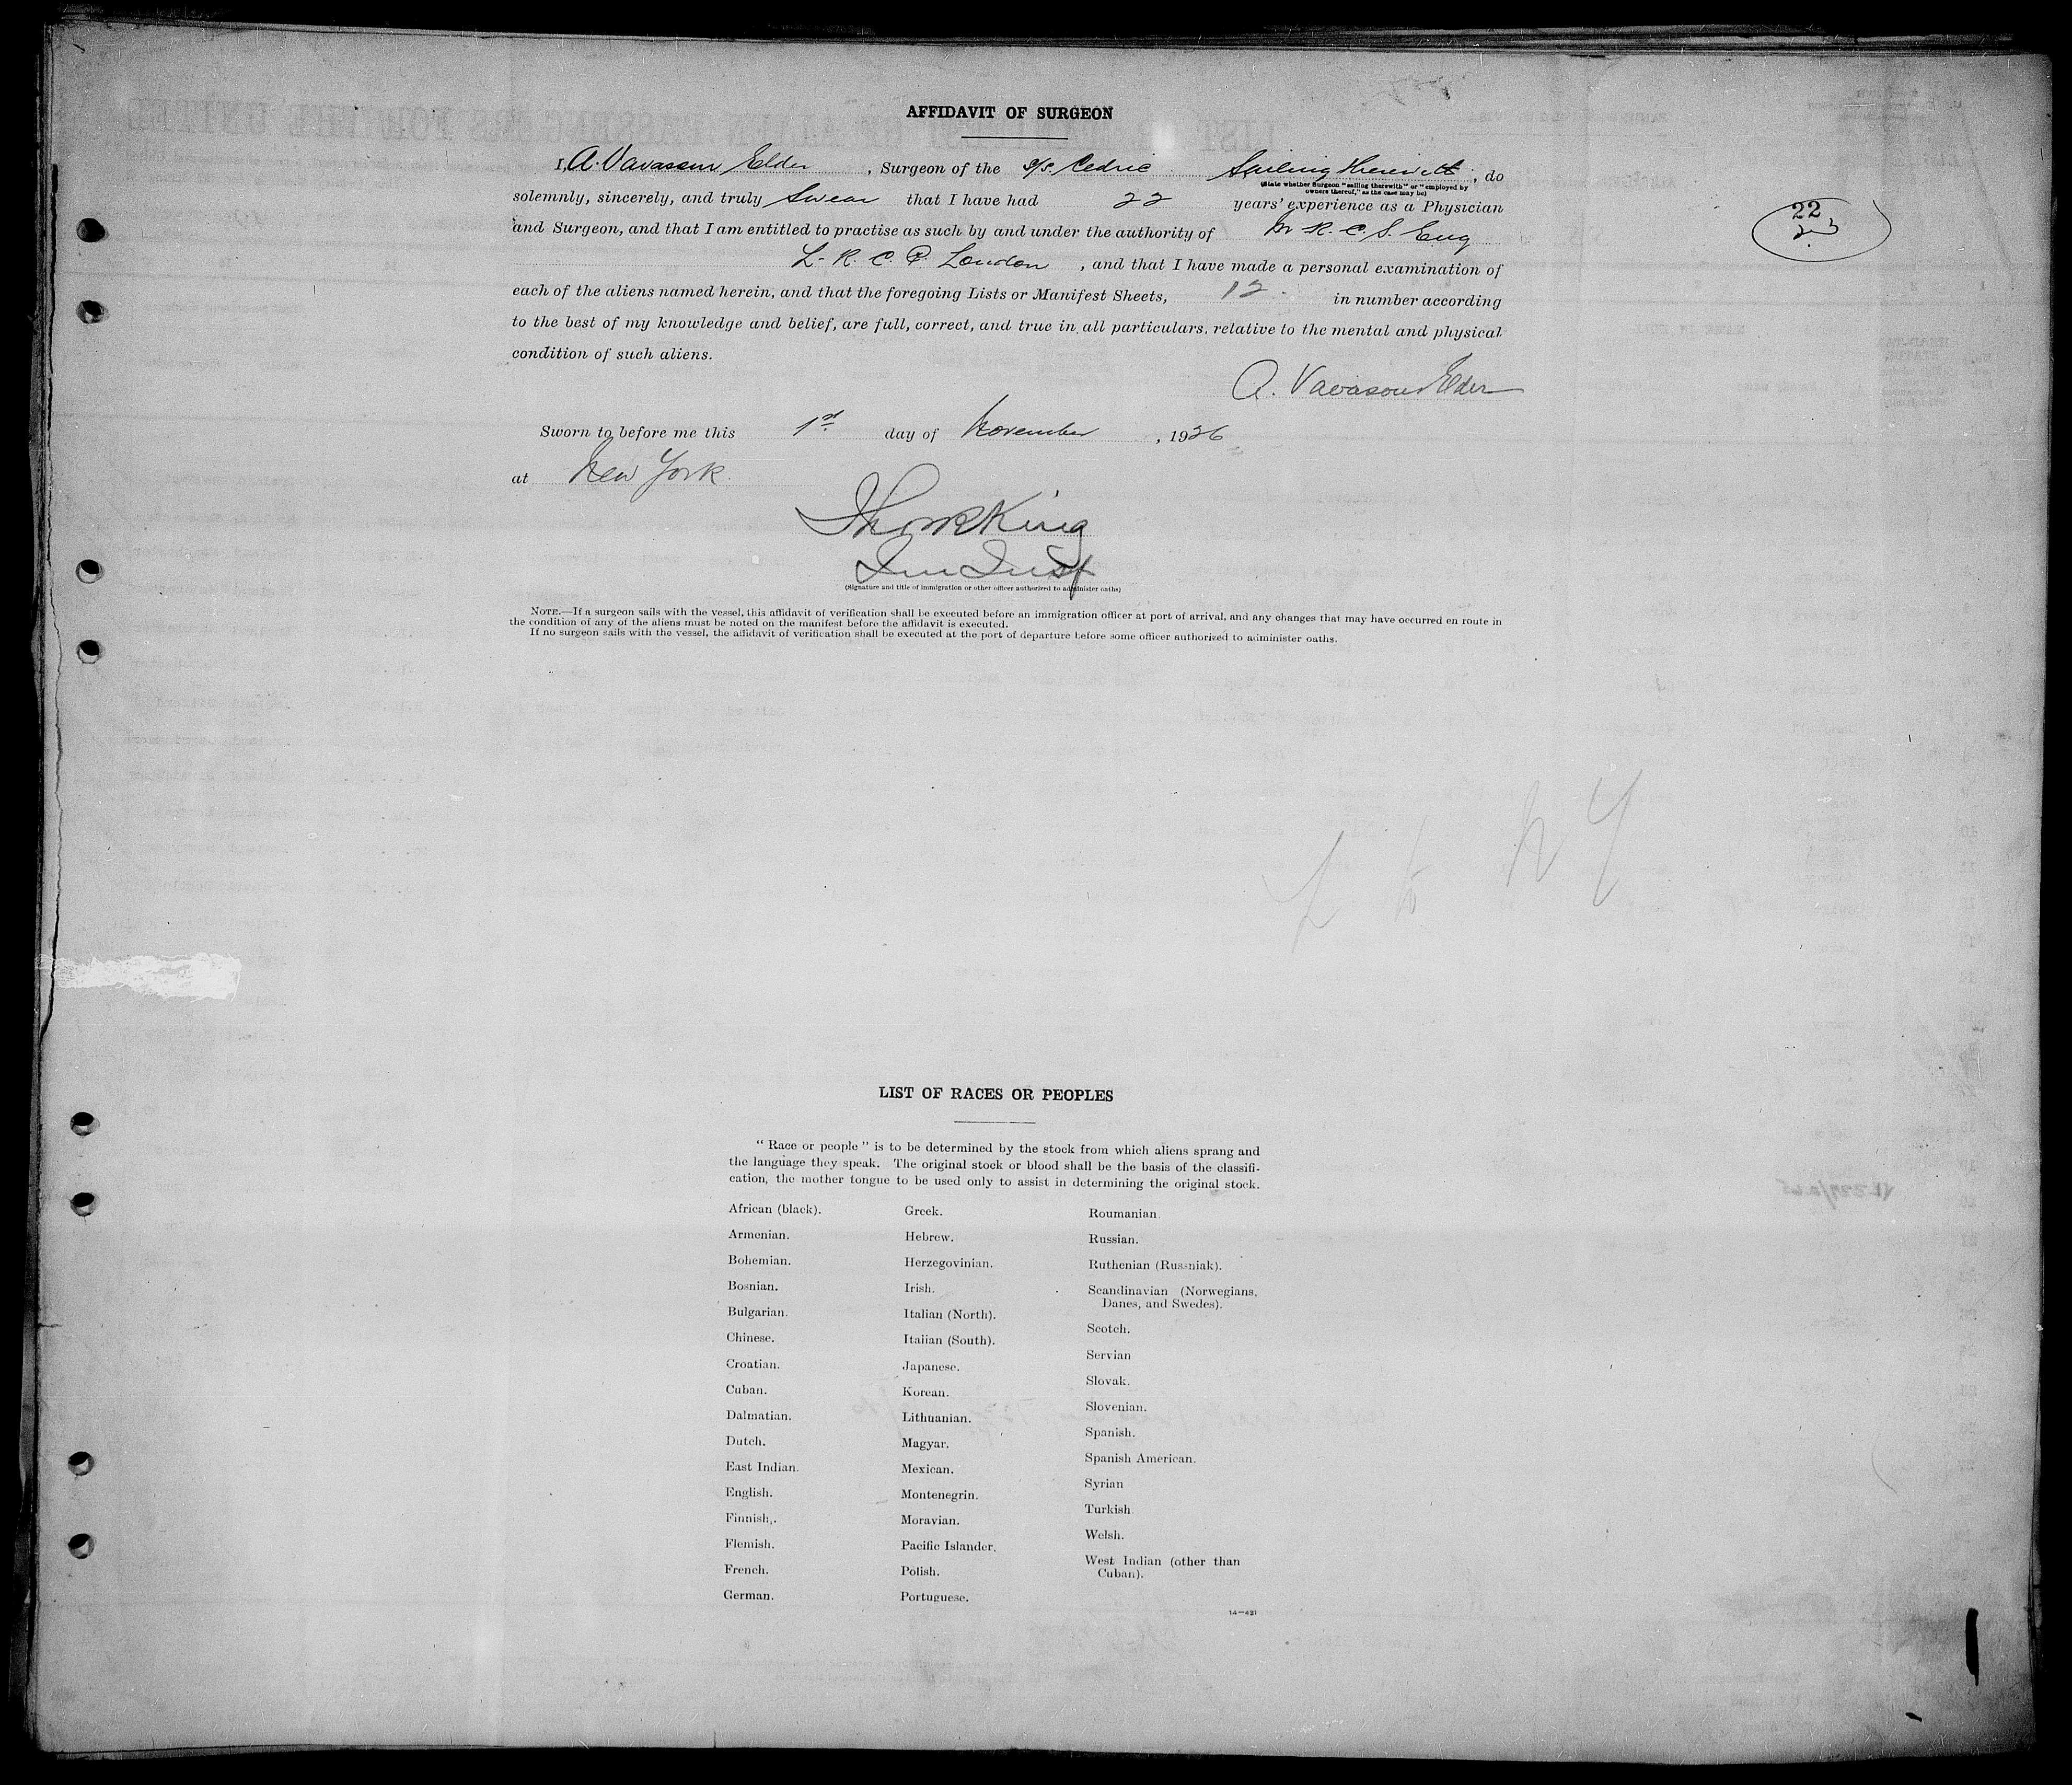 AFFIDAVIT OF SURGEON
I, A. Vavasour Elder, Surgeon of the S/S. Cedric Sailing therewith, do
(State whether Surgeon "sailing therewith" or "employed by
owners thereof," as the case may be)
solemnly, sincerely, and truly Swear that I have had 22 years' experience as a Physician
and Surgeon, and that I am entitled to practise as such by and under the authority of M. R. C. S. Eng
L. R. C. P. London, and that I have made a personal examination of
each of the aliens named herein, and that the foregoing Lists or Manifest Sheets, 12 in number according
to the best of my knowledge and belief, are full, correct, and true in all particulars, relative to the mental and physical
condition of such aliens.
A. Vavasour Elder
Sworn to before me this 1st day of November, 1926
at New York
King
Imm Insp
(Signature and title of immigration or other officer authorized to administer oaths)
NOTE.—If a surgeon sails with the vessel, this affidavit of verification shall be executed before an immigration officer at port of arrival, and any changes that may have occurred en route in
the condition of any of the aliens must be noted on the manifest before the affidavit is executed.
If no surgeon sails with the vessel, the affidavit of verification shall be executed at the port of departure before some officer authorized to administer oaths.
22
23
L to NY
LIST OF RACES OR PEOPLES
"Race or people" is to be determined by the stock from which aliens sprang and
the language they speak. The original stock or blood shall be the basis of the classifi-
cation, the mother tongue to be used only to assist in determining the original stock.
African (black).
Armenian.
Bohemian.
Bosnian.
Bulgarian.
Chinese.
Croatian.
Cuban.
Dalmatian.
Dutch.
East Indian.
English.
Finnish.
Flemish.
French.
German.
Greek.
Hebrew.
Herzegovinian.
Irish.
Italian (North).
Italian (South).
Japanese.
Korean.
Lithuanian.
Magyar.
Mexican.
Montenegrin.
Moravian.
Pacific Islander.
Polish.
Portuguese.
Roumanian.
Russian.
Ruthenian (Russniak).
Scandinavian (Norwegians,
Danes, and Swedes).
Scotch.
Servian
Slovak.
Slovenian.
Spanish.
Spanish American.
Syrian
Turkish
Welsh.
West Indian (other than
Cuban).
14—421